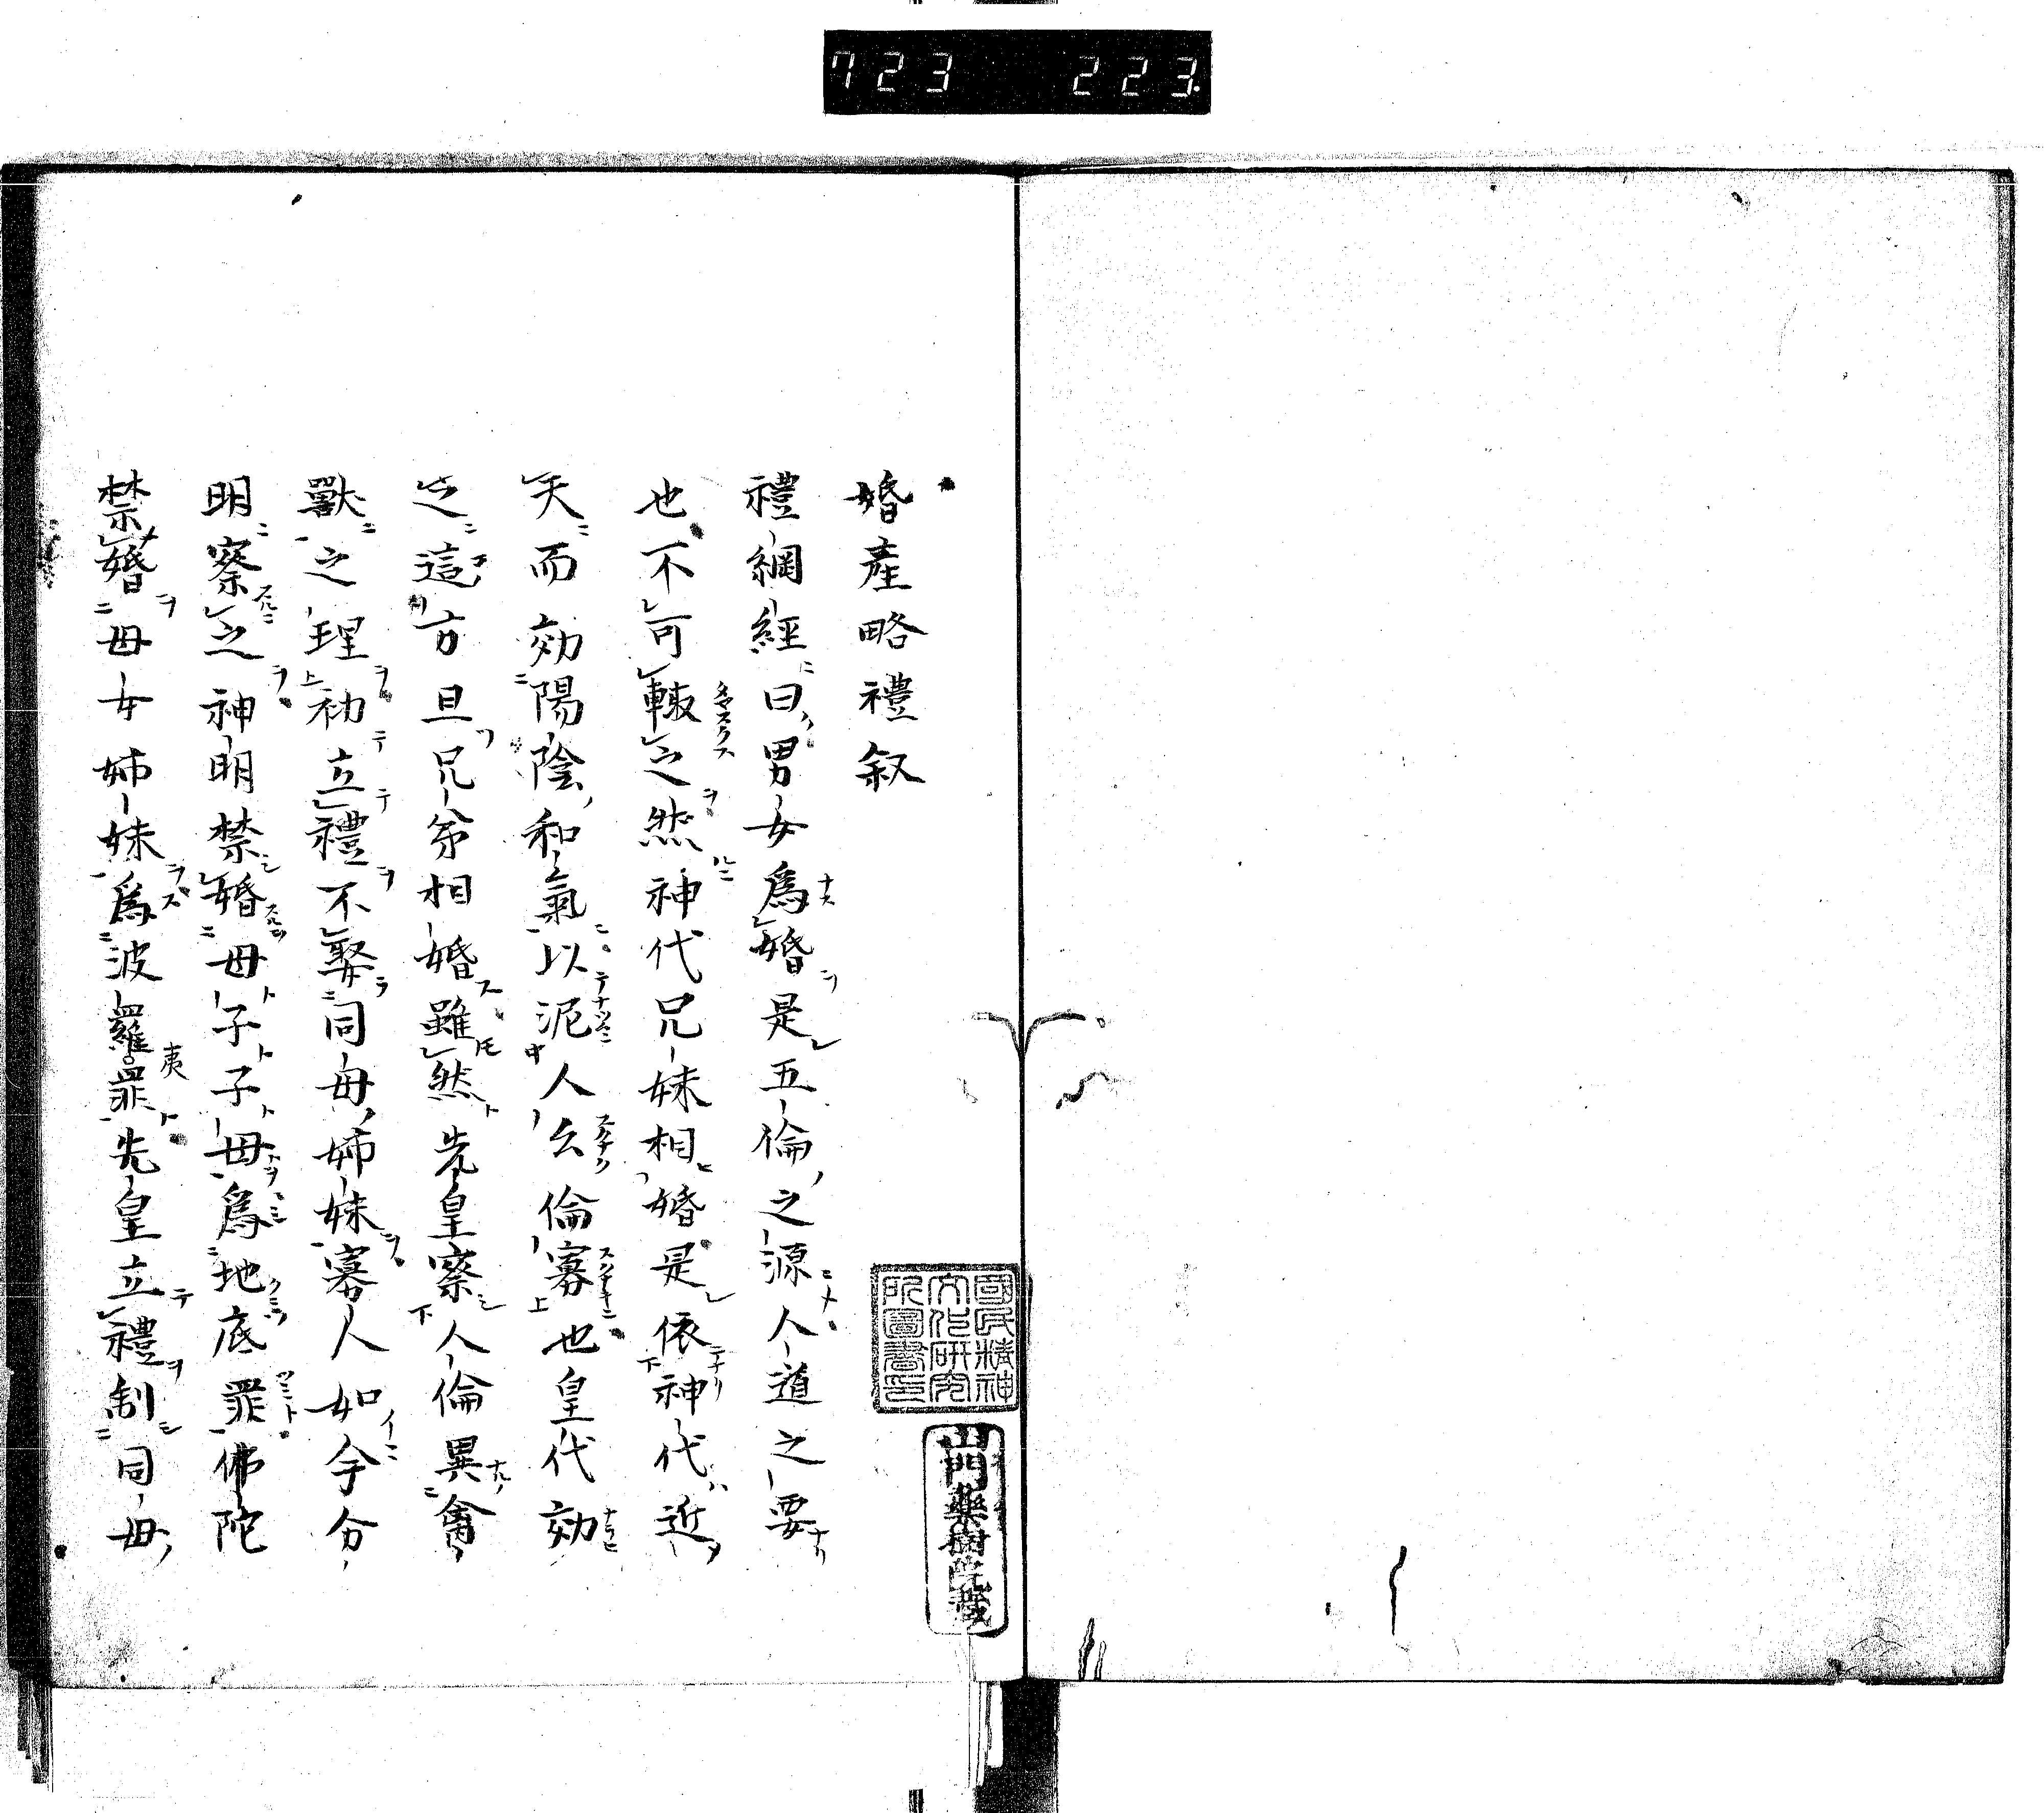 723 223.
婚産略禮叙
禮綱經曰男女爲婚是五倫之源人道之要
也不可輙之然神代兄妹相婚是依神代近
天而効陽陰和氣以泥人么倫寡也皇代効
之這方且兄弟相婚雖然先皇察人倫異禽
獸之理初立禮不娶同母姉妹寡人如今分
明察之神明禁婚母子子母爲地底罪佛陀
禁婚母女姉妹爲波羅夷罪先皇立禮制同母
國民精神
文化研究
所圖書印
山門藥樹院藏